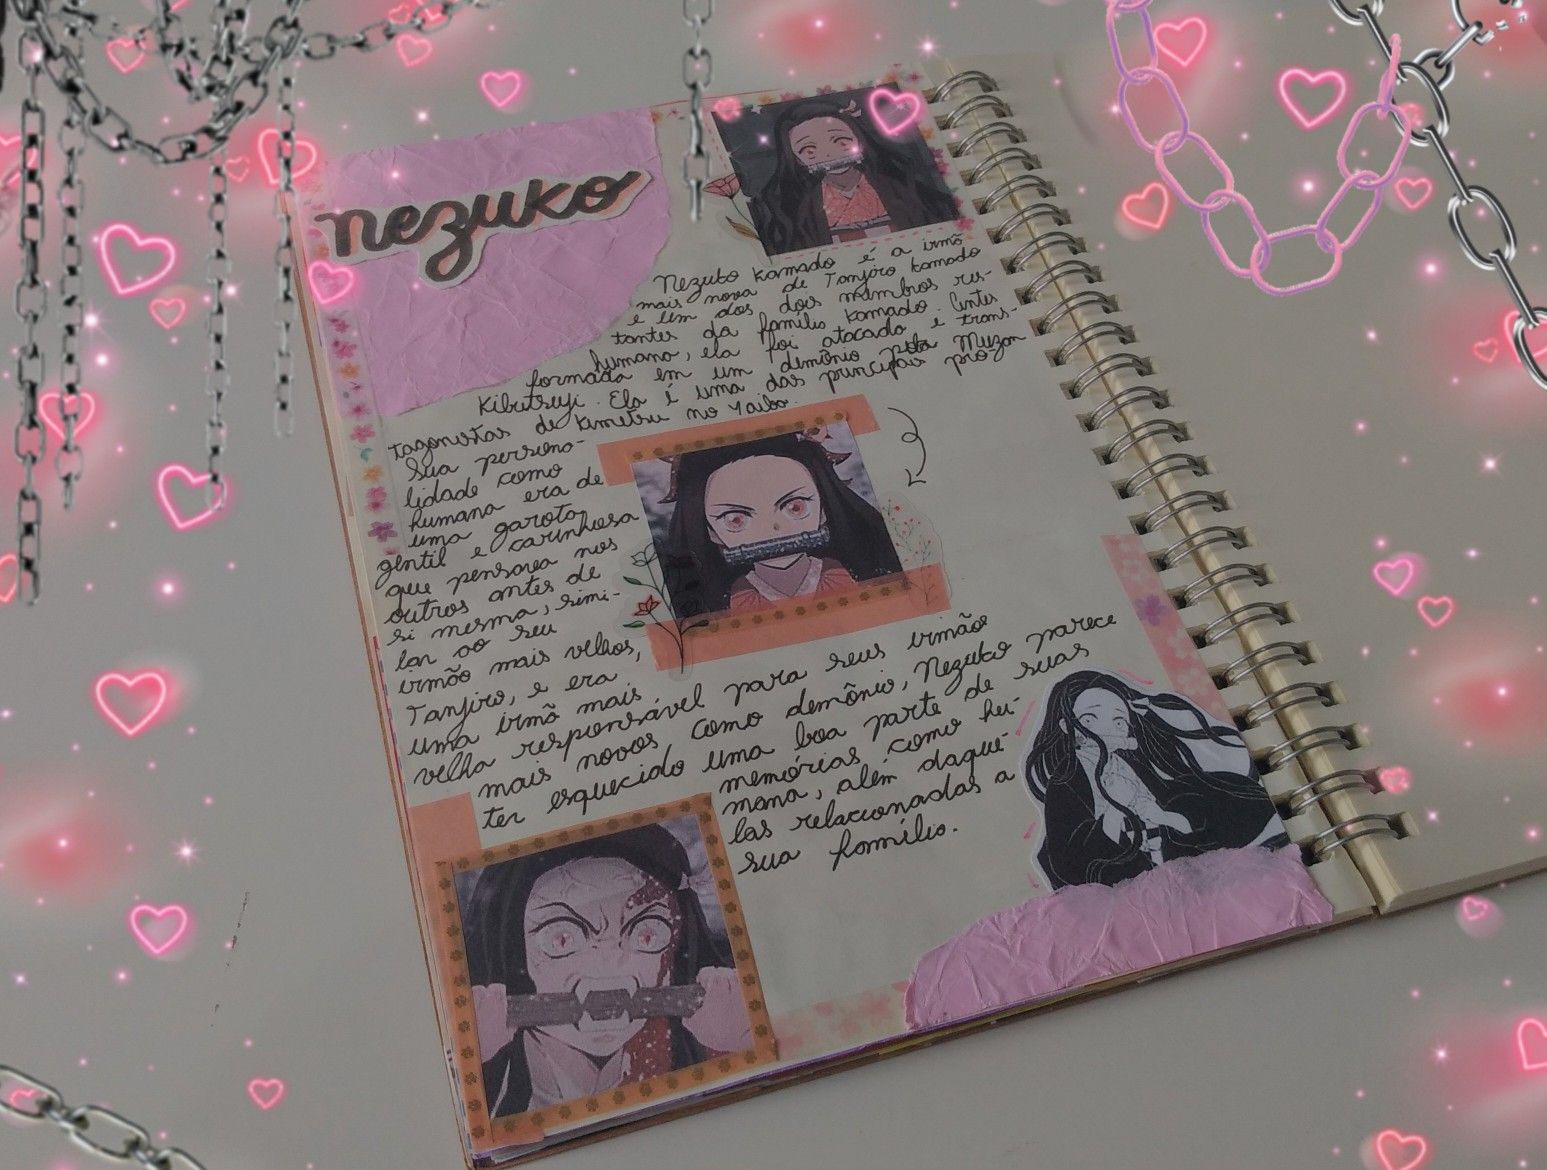 nezuko
Nezuko Kamado é a irmã
mais nova de Tanjiro Kamado
e um dos dois membros res-
tantes da família Kamado. Antes
humana, ela foi atacada e trans-
formada em um demônio pelo Muzan
Kibutsuji. Ela é uma das principais pro-
tagonistas de Kimetsu no Yaiba.
Sua persona-
lidade como
humana era de
uma garota
gentil e carinhosa
que pensava nos
outros antes de
si mesma, simi-
lar ao seu
irmão mais velhos,
Tanjiro, e era
uma irmã mais
velha responsável para seus irmãos
mais novos. Como demônio, Nezuko parece
ter esquecido uma boa parte de suas
memórias como hu-
mana, além daque-
las relacionadas a
sua família.